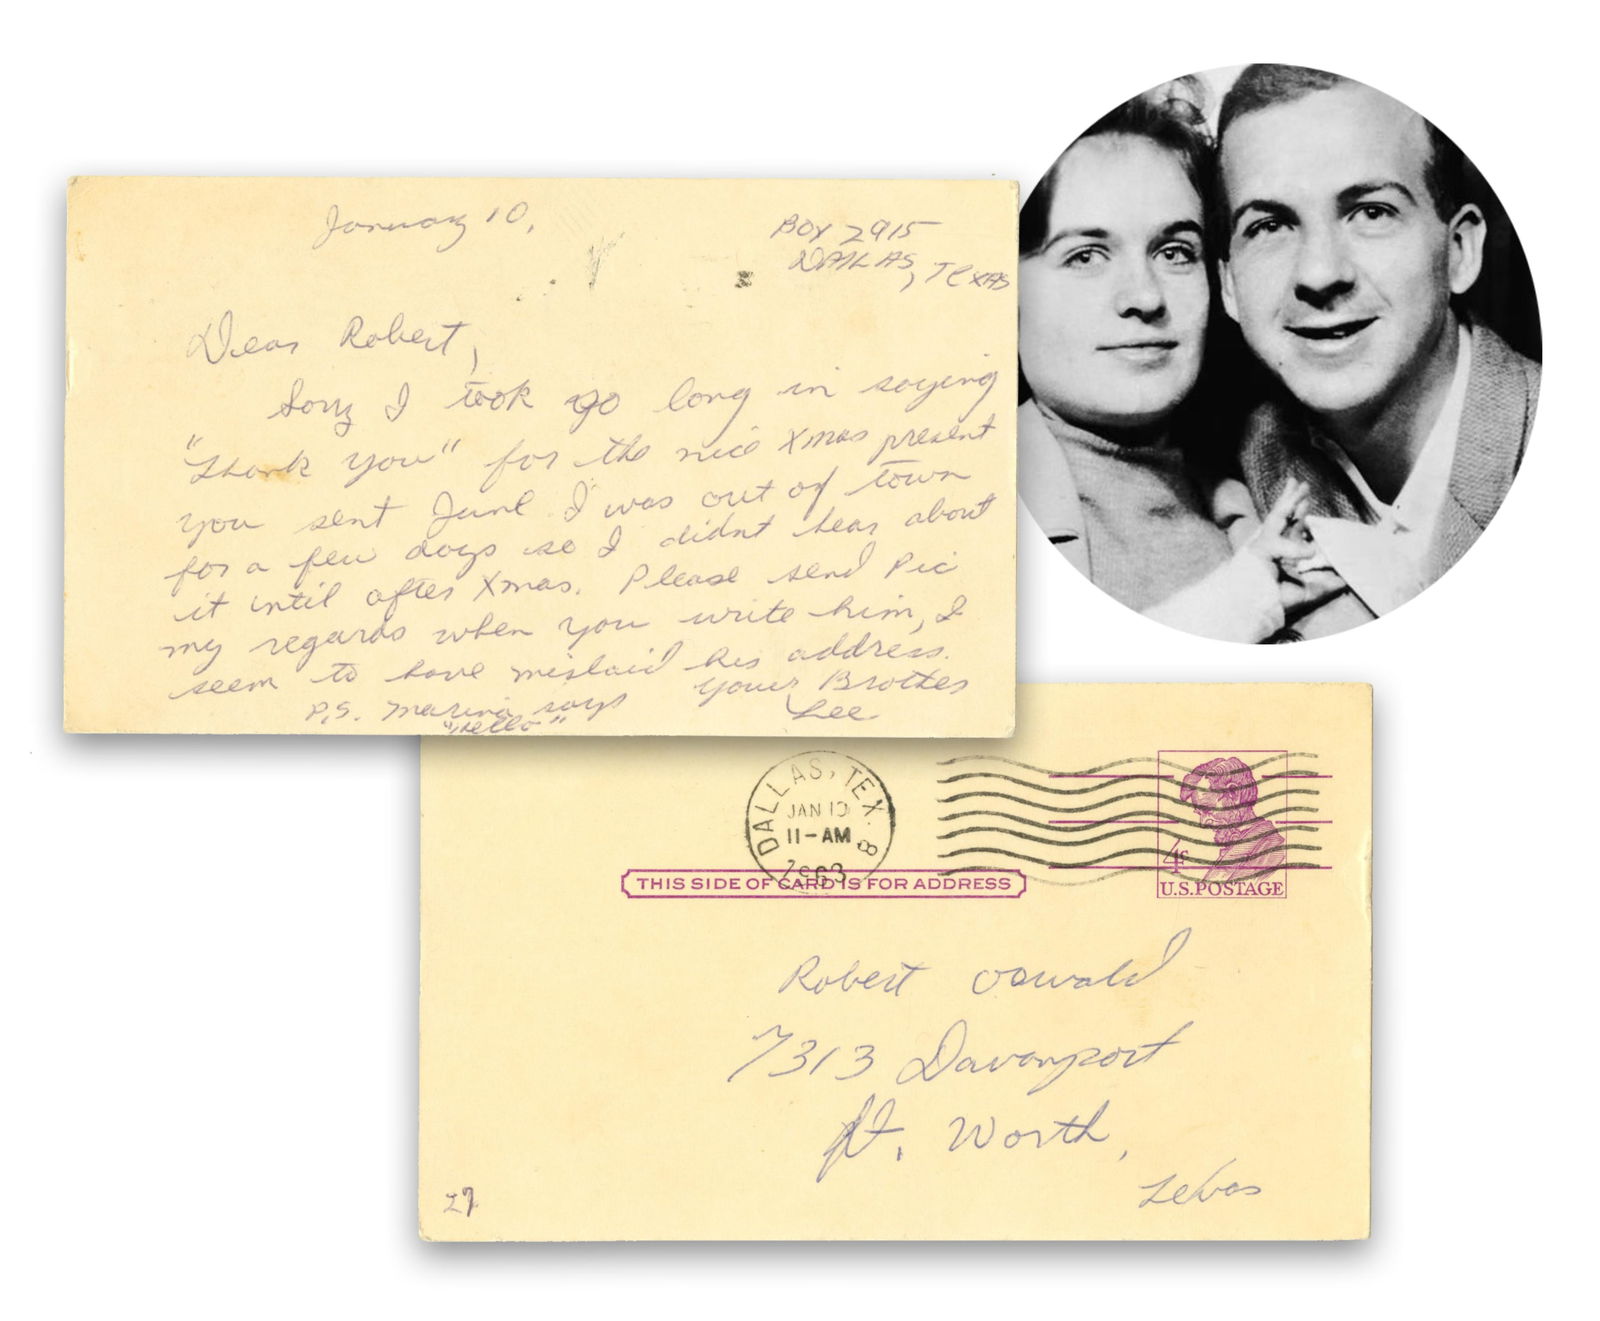 January 10,
BOX 2915
DALLAS, TEXAS
Dear Robert,
Sorry I took so long in saying
"Thank you" for the nice Xmas present
you sent June I was out of town
for a few days so I didnt hear about
it until after Xmas. Please send Pic
my regards when you write him, I
seem to have mislaid his address.
Your Brother
Lee
P.S. Marina says
"Hello"
DALLAS, TEX. 8
JAN 10
11-AM
1963
4¢
U.S.POSTAGE
THIS SIDE OF CARD IS FOR ADDRESS
Robert Oswald
7313 Davenport
Ft. Worth,
Texas